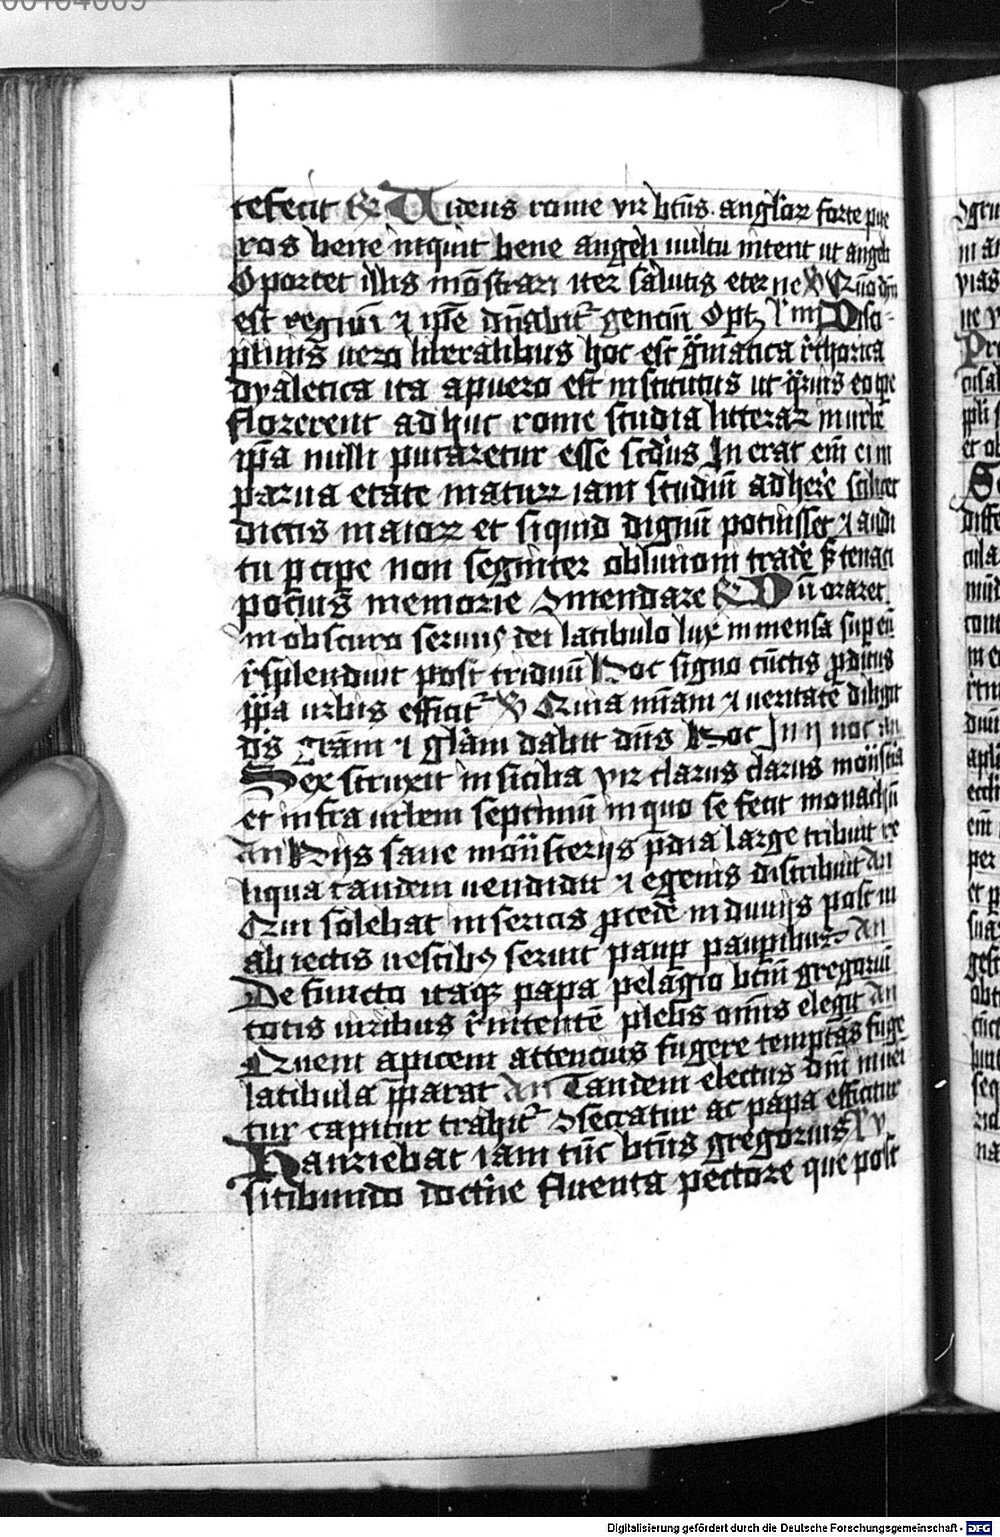 tefecit R Videns rome vir btūs. angloꝝ forte pue
ros bene inquit bene angeli uultu nitent ut angeli
Oportet illis mōstrari iter salutis eterne V Qm̄ dn̄i
est regnū ⁊ ip̄e dn̄abit᷑ genciū Optꝫ Disci
plinis uero liberalibus hoc est gͣmatica rethorica
dyaletica ita apuero est institutus ut quīs eo tp̄e
florerent adhuc rome studia litteraꝝ in urbe
ip̄a nulli putaretur esse scd̄us Inerat em̄ ei in
parua etate maturꝝ iam studiū adherē scilicet
dictis maioꝝ et siquid dignū potuisset audi
tu ꝑcipe non segniter obliuioni tradē sꝫ tenaci
pocius memorie ↄmendare R Dū oraret
in obscuro seruus dei latibulo lux inmensa sup eū
rͤsplenduit post triduū Hoc signo cūctis ꝓditus
pp̄a urbis efficit᷑ V Quia mīam ⁊ ueritatē diligit
ds̄ grām ⁊ glām dabit dn̄s Hoc In ij noc an
Sex struxit in sicilia vir clarus clarus monͣstia
et infra urbem septimū in quo se fecit monachū
an Hijs sane monͣsterijs p̄dia large tribuit re
liqua tandem uendidit ⁊ egenis distribuit An
Qui solebat in sericis ꝓcedē in diuijs post in
abiectis uestibꝰ seruit paupꝑ pauꝑibus An
Defuncto itaqꝫ papa pelagio btm̄ gregoriū
totis uiribus rͤnitentē plebs om̄s elegit An
Quem apicem attencius fugere temptās fuge
latibula p̄parat An Tandem electus dn̄i inueī
tur capitur trahit᷑ ↄsecratur ac papa efficitur
Hauriebat iam tūc btūs gregorius
sitibundo doctͥne fluenta pectore que post
Digitalisierung gefördert durch die Deutsche Forschungsgemeinschaft - DFG